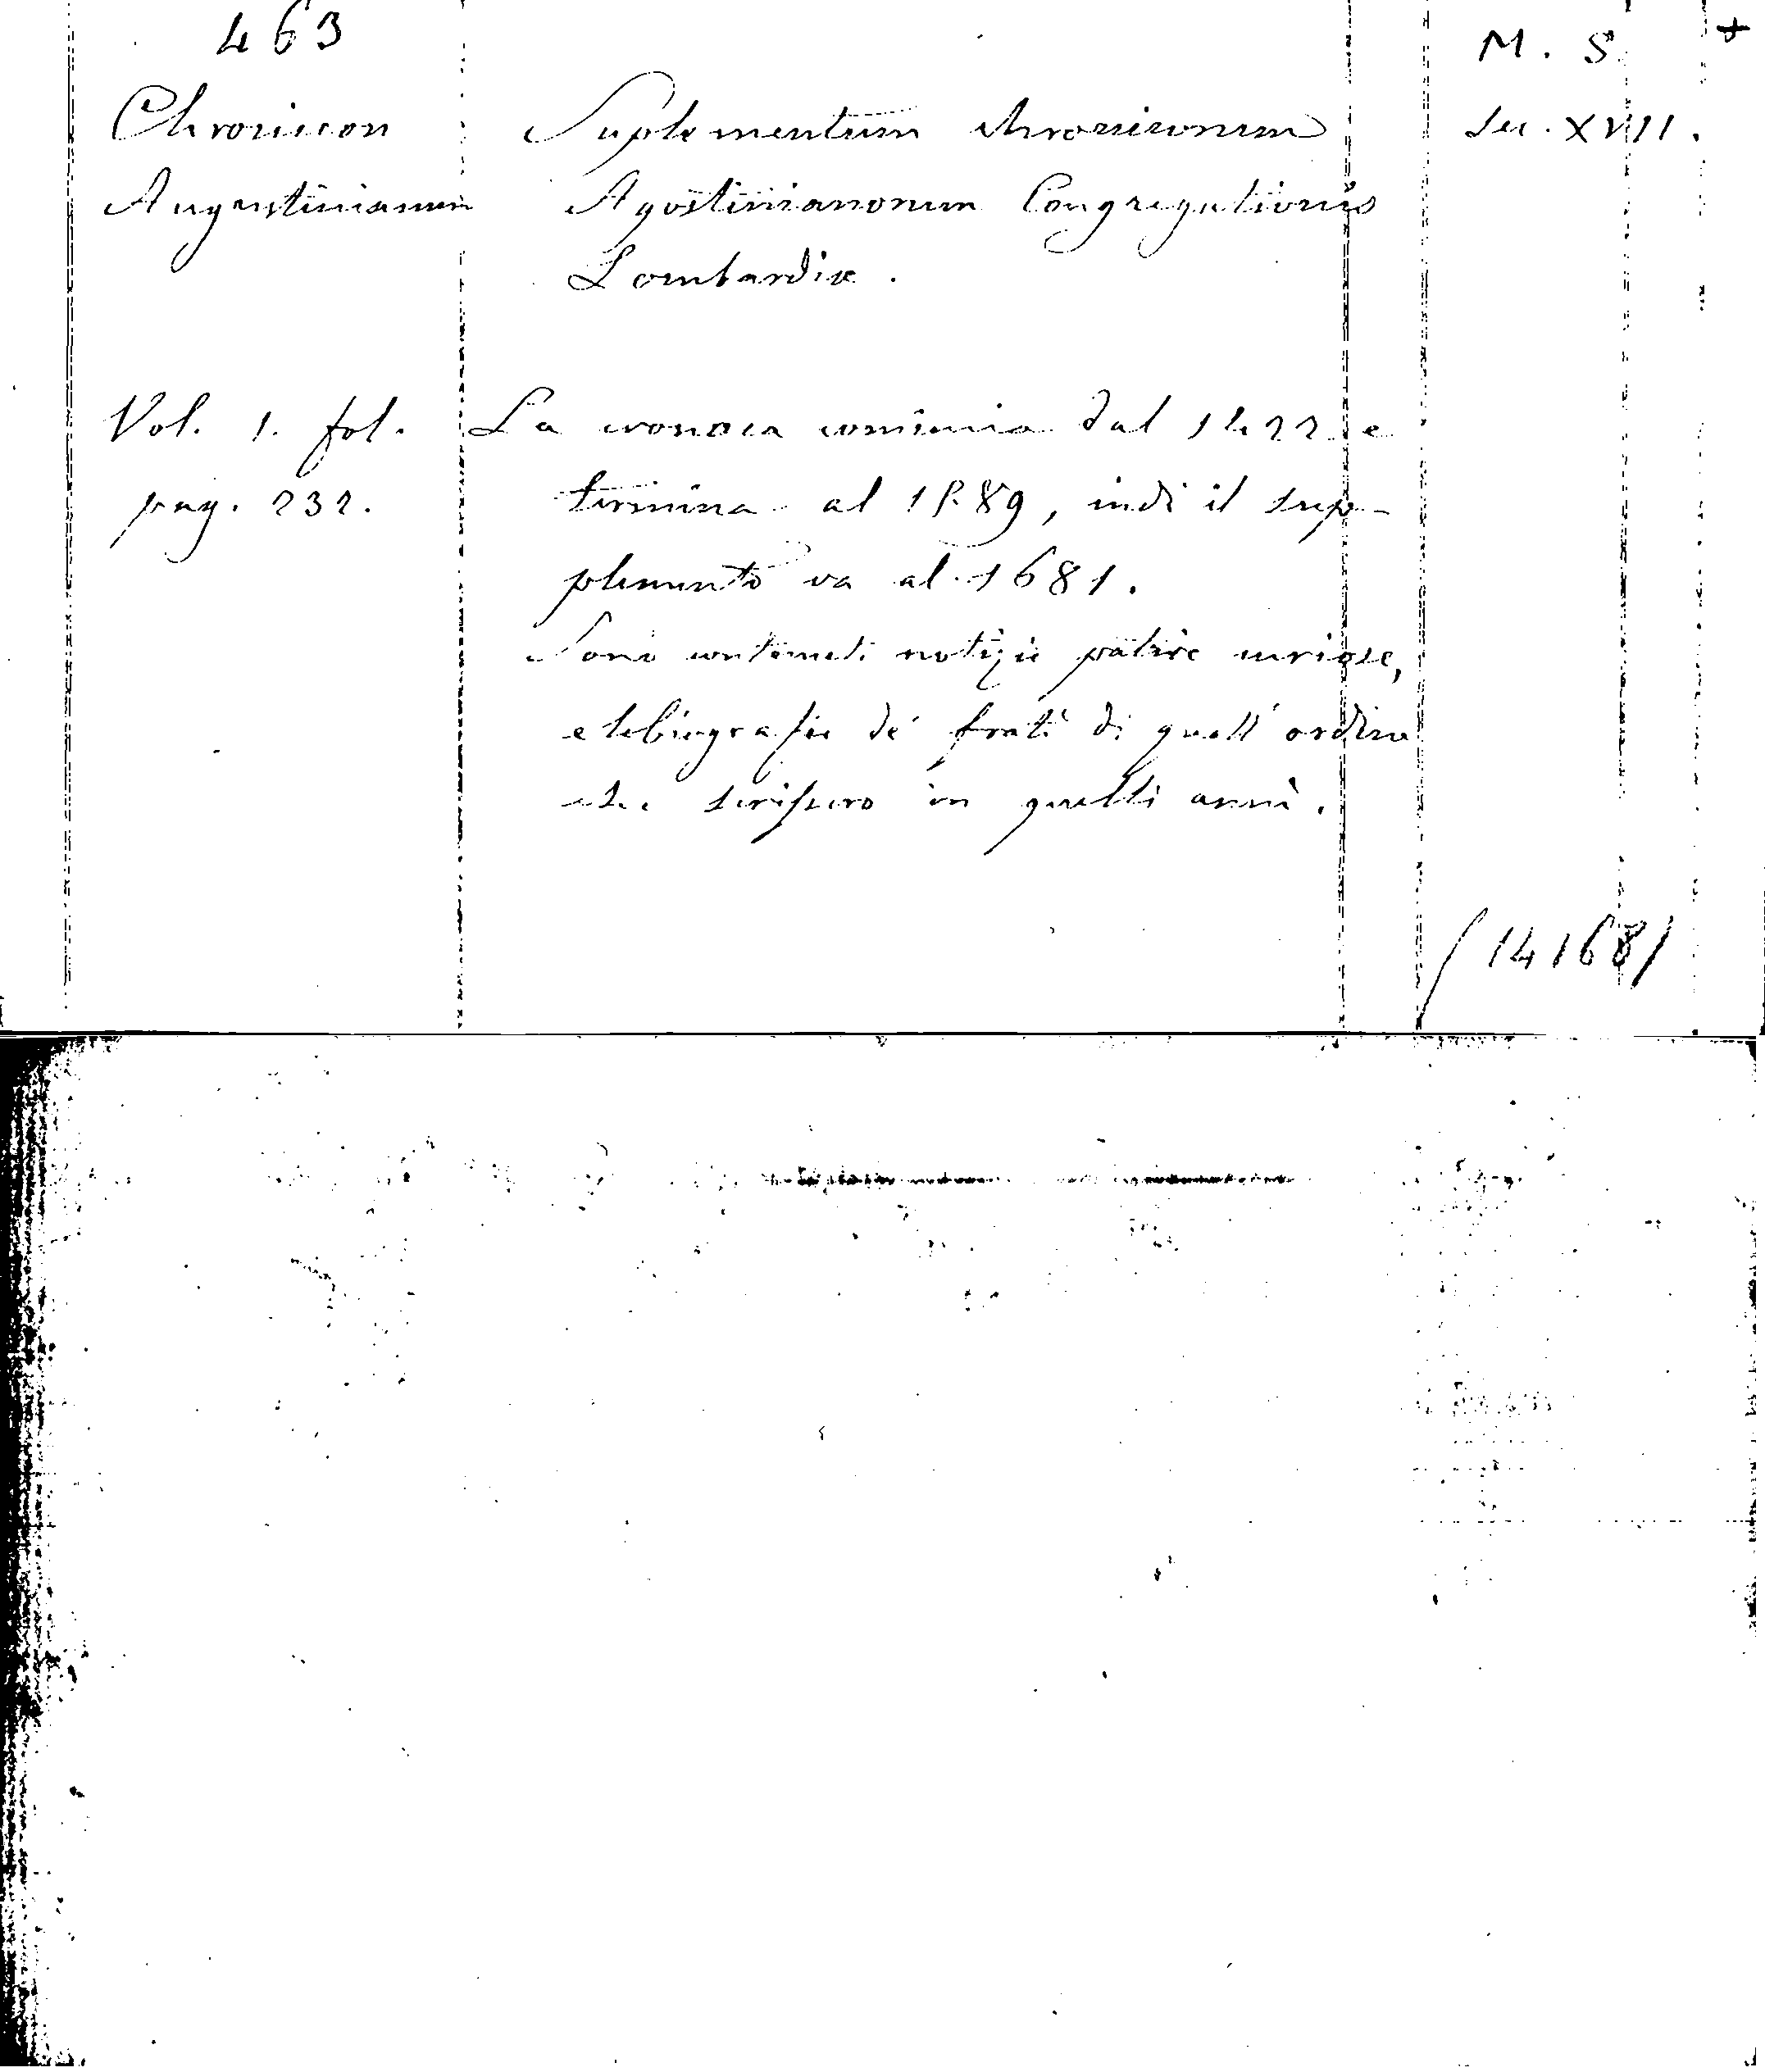 463
M. S. +
Chronicon
Suplementum chroniconum
Sec. XVII.
Augustinianum
Agostinianonum Congregationis
Lombardiæ.
Vol. 1. fol.
La cronaca comincia dal 1422 e
pag. 232.
termina al 1589, indi il sup-
plemento va al 1681.
Sono contenuti notizie patrie curiose,
e le biografie de' frati di quell' ordine
che scrissero in quelli anni.
(14168)